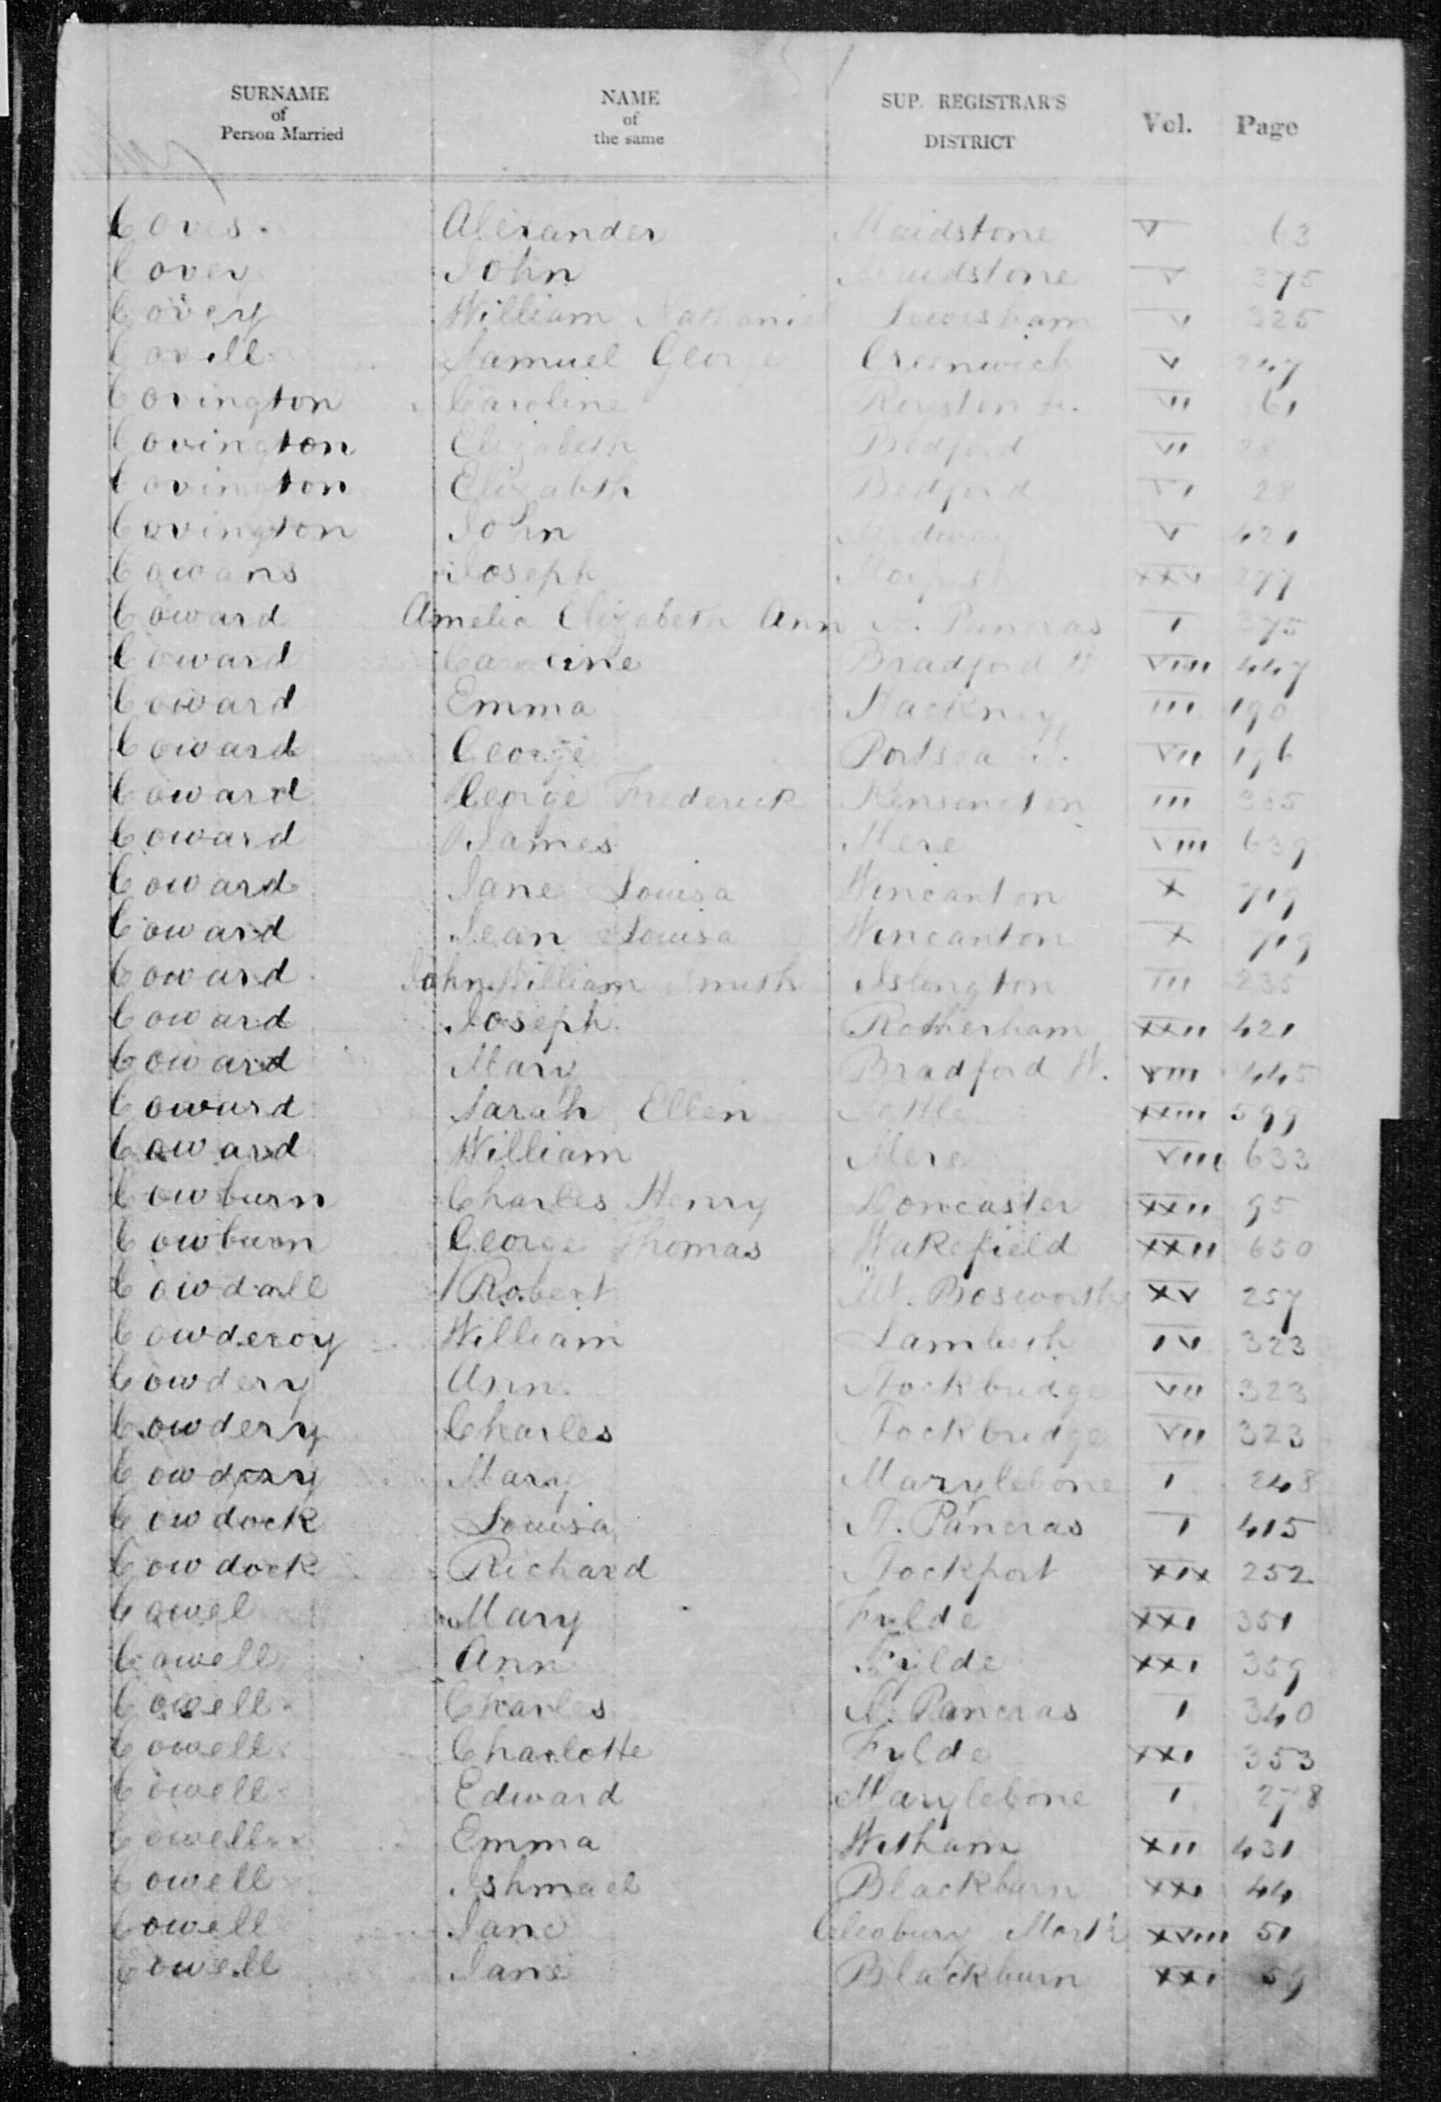 SURNAME of Person Married NAME of the same SUP. REGISTRAR'S DISTRICT Vol. Page
Coves Alexander Maidstone V 63
Covey John Maidstone V 375
Covey William Nathaniel Lewisham V 325
Covill Samuel George Greenwich V
Covington Caroline Royston VI 61
Covington Elizabeth Bedford VI 28
Covington Elizabth Bedford VI 28
Covington John Medway V 421
Cowans Joseph XXV 277
Coward Amelia Elizabeth Ann St. Pancras I 375
Coward Caroline Bradford W VIII 447
Coward Emma Hackney III 190
Coward George Portsea VII 196
Coward George Frederick Kensington III 305
Coward James Mere VIII 639
Coward Jane Louisa Wincanton X 719
Coward Jean Louisa Wincanton X 719
Coward John William Smith Islington III 235
Coward Joseph Rotherham XXII 421
Coward Mary Bradford W. VIII 445
Coward Sarah Ellen Settle XXIII 599
Coward William Mere VIII 633
Cowburn Charles Henry Doncaster XXII 95
Cowburn George Thomas Wakefield XXII 650
Cowdall Robert Mt. Bosworth XV 257
Cowderoy William Lambeth IV 323
Cowdery Ann Stockbridge VII 323
Cowderry Charles Stockbridge VII 323
Cowdery Mary Marylebone I 248
Cowdock Louisa St. Pancras I 415
Cowdock Richard Stockport XIX 252
Cowel Mary Fylde XXI 351
Cowell Ann Fylde XXI 359
Cowell Charles St. Pancras I 340
Cowell Charlotte Fylde XXI 353
Cowell Edward Marylebone I 278
Cowell Emma Witham XII 431
Cowell Ishmael Blackburn XXI 44
Cowell Jane Cleobury Mort'r XVIII 51
Cowell Jane Blackburn XXI 59